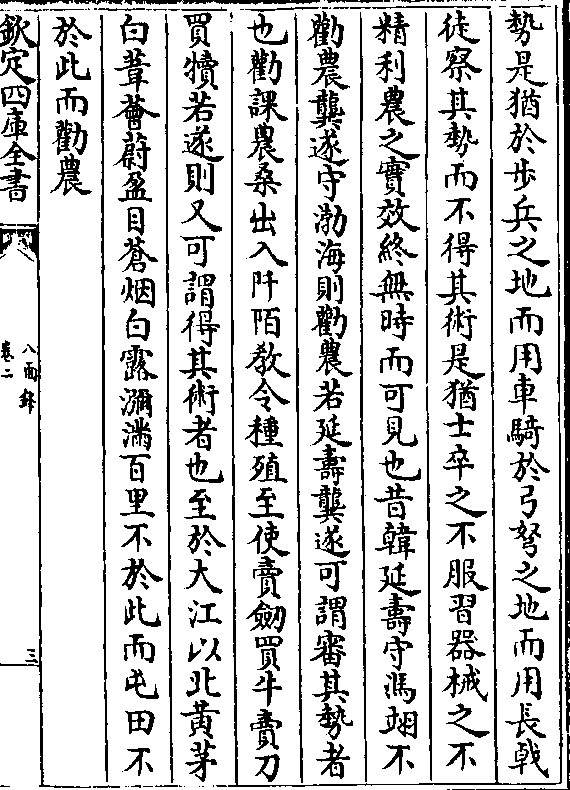 勢是猶於步兵之地而用車騎於弓弩之地而用長戟
徒察其勢而不得其術是猶士卒之不服習器械之不
精利農之實效終無時而可見也昔韓延壽守馮翊不
勸農龔遂守渤海則勸農若延壽龔遂可謂審其勢者
也勸課農桑出入阡陌敎令種殖至使賣劒買牛賣刀
買犢若遂則又可謂得其術者也至於大江以北黃茅
白葦薈蔚盈目蒼烟白露瀰滿百里不於此而屯田不
於此而勸農
欽定四庫全書
八面鋒
卷二
三